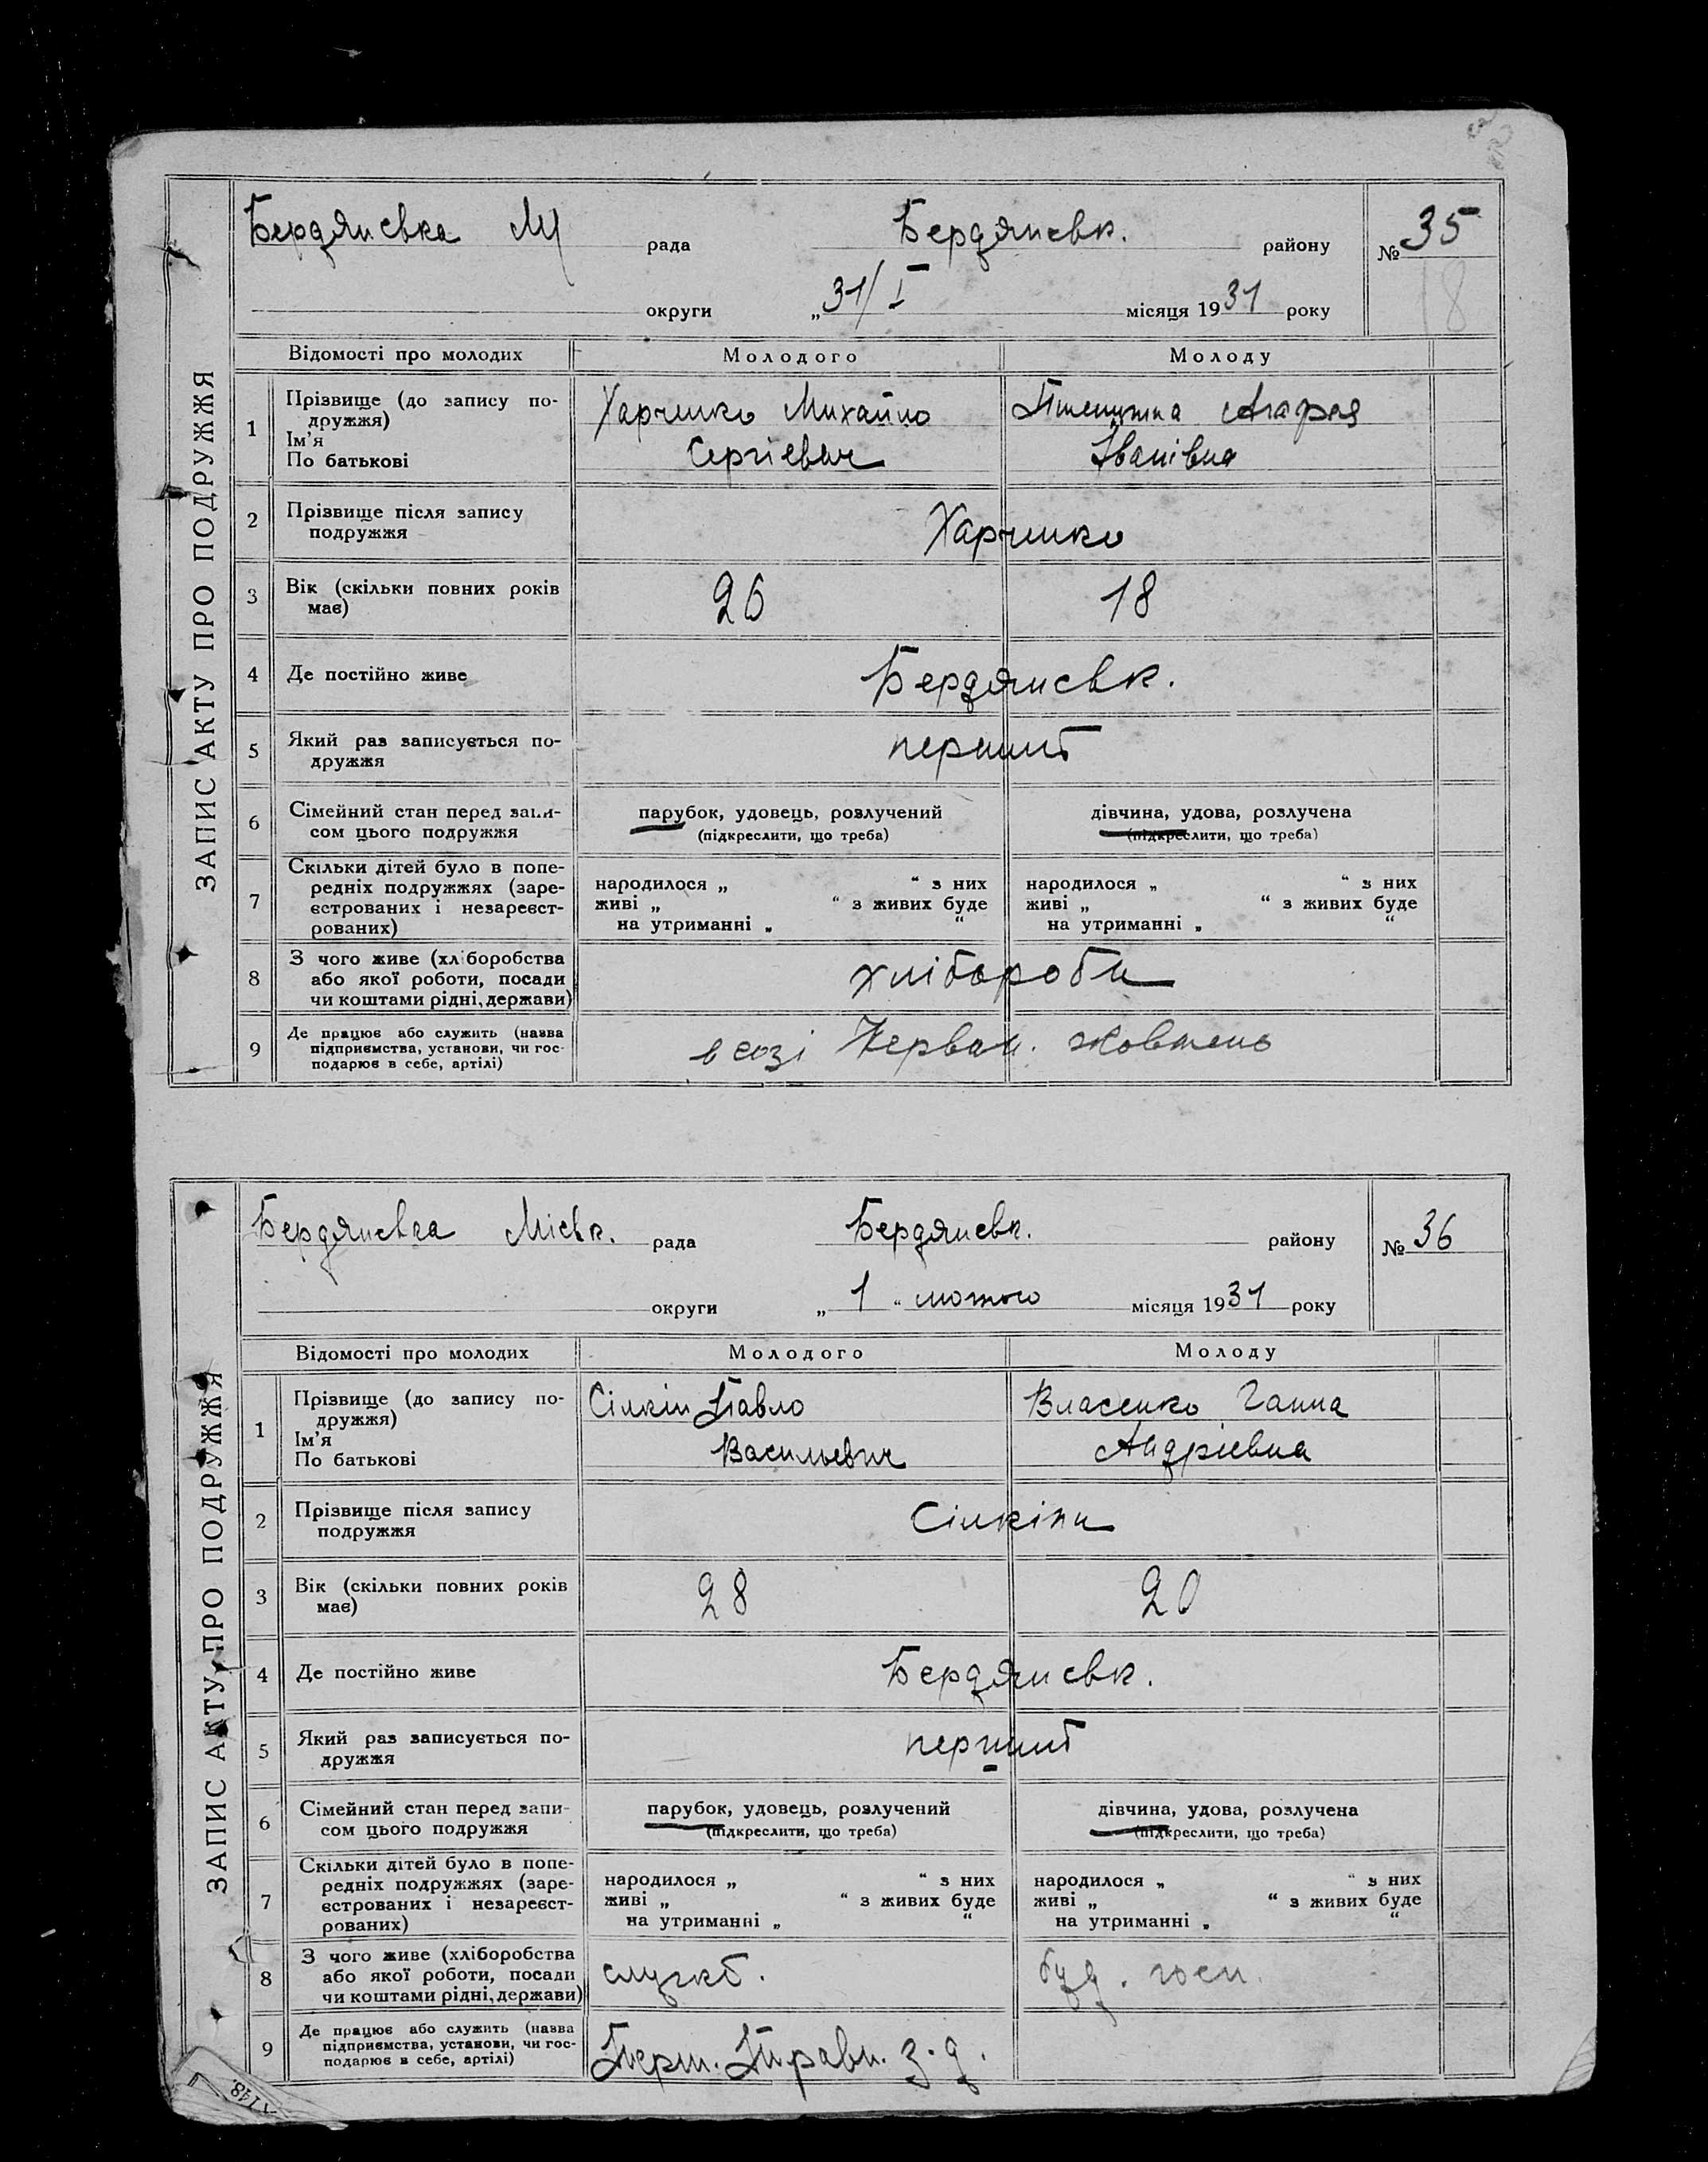 Бердянська М рада Бердянськ. району № 35
18
округи „31/I місяця 1931 року
ЗАПИС АКТУ ПРО ПОДРУЖЖЯ
Відомості про молодих Молодого Молоду
1 Прізвище (до запису по-
дружжя)
Ім'я
По батькові
Харченко Михайло
Сергієвич
Пшенична Агафія
Іванівна
2 Прізвище після запису
подружжя
Харченко
3 Вік (скільки повних років
має)
26 18
4 Де постійно живе Бердянськ.
5 Який раз записується по-
дружжя
перший
6 Сімейний стан перед запи-
сом цього подружжя
парубок, удовець, розлучений
(підкреслити, що треба)
дівчина, удова, розлучена
(підкреслити, що треба)
7 Скільки дітей було в попе-
редніх подружжях (заре-
єстрованих і незареєст-
рованих)
народилося „ “ з них
живі „ “ з живих буде
на утриманні „ “
народилося „ “ з них
живі „ “ з живих буде
на утриманні „ “
8 З чого живе (хліборобства
або якої роботи, посади
чи коштами рідні, держави)
хлібороби
9 Де працює або служить (назва
підприємства, установи, чи гос-
подарює в себе, артілі)
в созі Червон. Жовтень
Бердянська Міськ. рада Бердянськ. району № 36
округи „ 1 “ лютого місяця 1931 року
ЗАПИС АКТУ ПРО ПОДРУЖЖЯ
Відомості про молодих Молодого Молоду
1 Прізвище (до запису по-
дружжя)
Ім'я
По батькові
Сілкін Павло
Васильевич
Власенко Ганна
Андріевна
2 Прізвище після запису
подружжя
Сілкіни
3 Вік (скільки повних років
має)
28 20
4 Де постійно живе Бердянськ.
5 Який раз записується по-
дружжя
перший
6 Сімейний стан перед запи-
сом цього подружжя
парубок, удовець, розлучений
(підкреслити, що треба)
дівчина, удова, розлучена
(підкреслити, що треба)
7 Скільки дітей було в попе-
редніх подружжях (заре-
єстрованих і незареєст-
рованих)
народилося „ “ з них
живі „ “ з живих буде
на утриманні „ “
народилося „ “ з них
живі „ “ з живих буде
на утриманні „ “
8 З чого живе (хліборобства
або якої роботи, посади
чи коштами рідні, держави)
служб.
буд. госп.
9 Де працює або служить (назва
підприємства, установи, чи гос-
подарює в себе, артілі)
Перш. Травн. з-д.